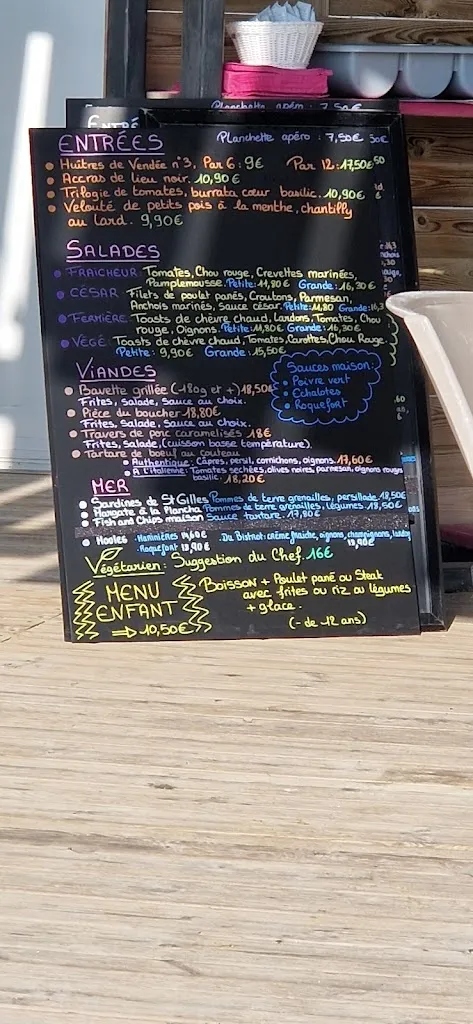 Planchette apéro : 7,50€
ENTRÉ
ENTRÉES Planchette apéro : 7,50€ 50€
Huîtres de Vendée n°3, Par 6 : 9€ Par 12 : 17,50€
Accras de lieu noir. 10,90€
Trilogie de tomates, burrata cœur basilic. 10,90€
Velouté de petits pois à la menthe, chantilly
au lard. 9,90€
SALADES
FRAICHEUR Tomates, Chou rouge, Crevettes marinées,
Pamplemousse. Petite : 11,80€ Grande : 16,30€
CÉSAR Filets de poulet panés, Croutons, Parmesan,
Anchois marinés, Sauce césar. Petite : 11,80 Grande : 16,3
FERMIÈRE Toasts de chèvre chaud, Lardons, Tomates, Chou
rouge, Oignons. Petite : 11,80€ Grande : 16,30€
VÉGÉ Toasts de chèvre chaud, Tomates, Carottes, Chou Rouge.
Petite : 9,90€ Grande : 15,50€
VIANDES
Bavette grillée (180g et +) 18,50€
Frites, Salade, Sauce au choix.
Pièce du boucher 18,80€
Frites, Salade, Sauce au choix.
Travers de porc caramelisés 18€
Frites, Salade, (cuisson basse température).
Tartare de boeuf au couteau
Authentique : Câpres, persil, cornichons, oignons. 17,60€
A L'italienne : Tomates sechées, olives noires, parmesan, oignons rouges
basilic. 18,20€
Sauces maison :
Poivre vert
Echalotes
Roquefort
MER
Sardines de St Gilles Pommes de terre grenailles, persillade. 18,50€
à la Plancha Pommes de terre grenailles, légumes. 18,50€
Fish and Chips maison Sauce tartare. 17,80€
Moules . Marinières . Du Bistrot : crème fraîche, oignons, champignons,
. Roquefort 13,90€ 13,90€
Végétarien : Suggestion du Chef. 16€
MENU
ENFANT
→ 10,50€
Boisson + Poulet pané ou Steak
avec frites ou riz ou légumes
+ glace.
(- de 12 ans)